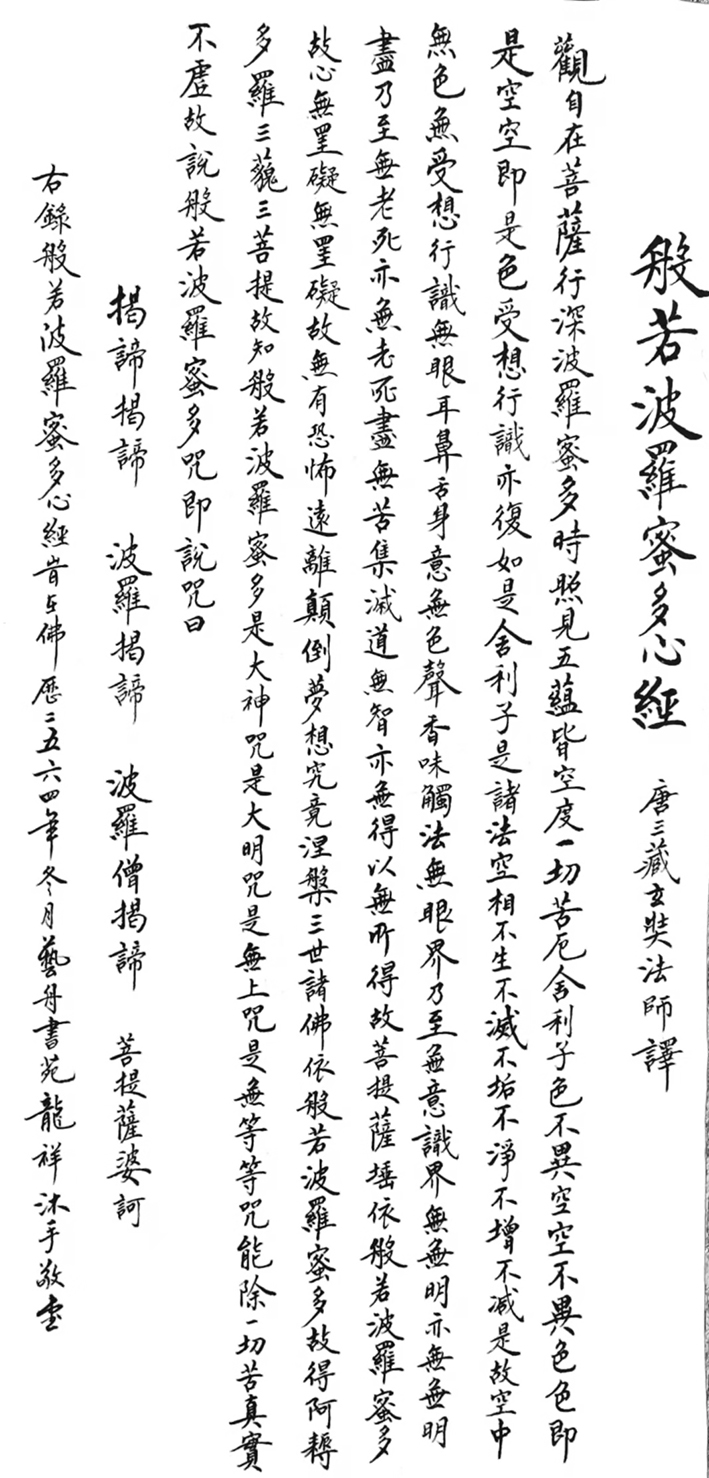 般若波羅蜜多心經 唐三藏玄奘法師譯
觀自在菩薩行深波羅蜜多時照見五蘊皆空度一切苦厄舍利子色不異空空不異色色即
是空空即是色受想行識亦復如是舍利子是諸法空相不生不滅不垢不淨不增不减是故空中
無色無受想行識無眼耳鼻舌身意無色聲香味觸法無眼界乃至無意識界無無明亦無無明
盡乃至無老死亦無老死盡無苦集滅道無智亦無得以無所得故菩提薩埵依般若波羅蜜多
故心無罣礙無罣礙故無有恐怖遠離顛倒夢想究竟涅槃三世諸佛依般若波羅蜜多故得阿耨
多羅三藐三菩提故知般若波羅蜜多是大神咒是大明咒是無上咒是無等等咒能除一切苦真實
不虛故說般若波羅蜜多咒即說咒曰
揭諦揭諦 波羅揭諦 波羅僧揭諦 菩提薩婆訶
右錄般若波羅蜜多心經時在佛歷二五六四年冬月藝舟書苑龍祥沐手敬書